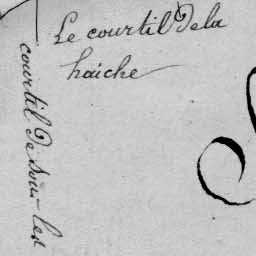 Le courtil Dela
haiche
courtil De Sous-les